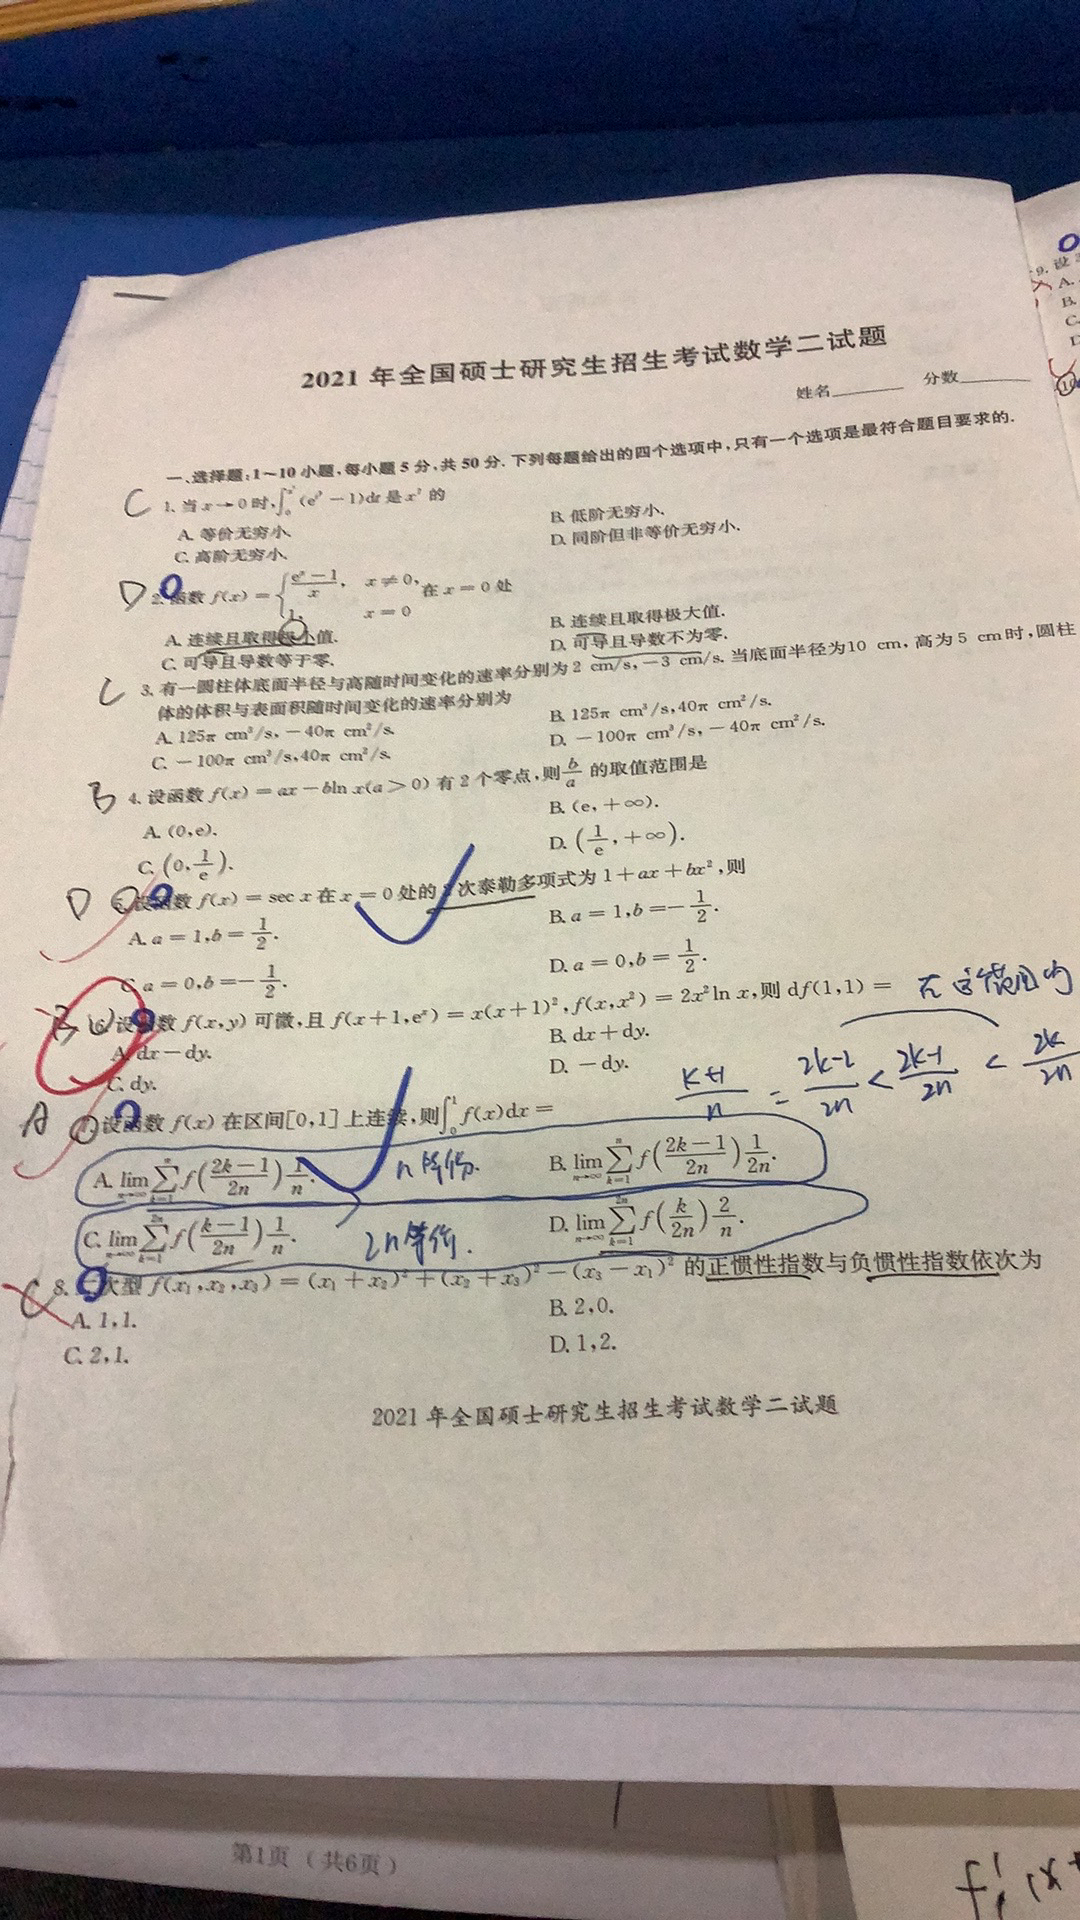 2021 年全国硕士研究生招生考试数学二试题
姓名______ 分数______
一、选择题:1~10 小题,每小题 5 分,共 50 分.下列每题给出的四个选项中,只有一个选项是最符合题目要求的.
C 1. 当 x→0 时,∫₀^{x²}(e^{t³}-1)dt 是 x⁷ 的
A. 等价无穷小. B. 低阶无穷小.
C. 高阶无穷小. D. 同阶但非等价无穷小.
D 2. 函数 f(x) = { (eˣ-1)/x, x≠0, 1, x=0 在 x=0 处
A. 连续且取得极小值. B. 连续且取得极大值.
C. 可导且导数等于零. D. 可导且导数不为零.
C 3. 有一圆柱体底面半径与高随时间变化的速率分别为 2 cm/s,-3 cm/s. 当底面半径为10 cm,高为 5 cm时,圆柱
体的体积与表面积随时间变化的速率分别为
A. 125π cm³/s,-40π cm²/s. B. 125π cm³/s,40π cm²/s.
C. -100π cm³/s,40π cm²/s. D. -100π cm³/s,-40π cm²/s.
B 4. 设函数 f(x) = ax-bln x(a>0) 有 2 个零点,则 b/a 的取值范围是
A. (0,e). B. (e,+∞).
C. (0,1/e). D. (1/e,+∞).
D 设函数 f(x) = sec x 在 x=0 处的 次泰勒多项式为 1+ax+bx²,则
A. a=1,b=1/2. B. a=1,b=-1/2.
C. a=0,b=-1/2. D. a=0,b=1/2.
B 6. 设函数 f(x,y) 可微,且 f(x+1,eˣ) = x(x+1)²,f(x,x²) = 2x²ln x,则 df(1,1) = 在这范围内
A. dx-dy. B. dx+dy.
C. dy. D. -dy.
(2k-2)/2n < (2k-1)/2n < 2k/2n
A 设函数 f(x) 在区间[0,1] 上连续,则∫₀¹ f(x)dx =
A. lim_{n→∞} Σ_{k=1}^{n} f((2k-1)/2n) 1/n. n等份. B. lim_{n→∞} Σ_{k=1}^{n} f((2k-1)/2n) 1/2n.
C. lim_{n→∞} Σ_{k=1}^{2n} f((k-1)/2n) 1/n. 2n等份. D. lim_{n→∞} Σ_{k=1}^{2n} f(k/2n) 2/n.
C 8. 次型 f(x₁,x₂,x₃) = (x₁+x₂)²+(x₂+x₃)²-(x₃-x₁)² 的正惯性指数与负惯性指数依次为
A. 1,1. B. 2,0.
C. 2,1. D. 1,2.
2021 年全国硕士研究生招生考试数学二试题
第1页 (共6页)
9. 设
A.
B.
C.